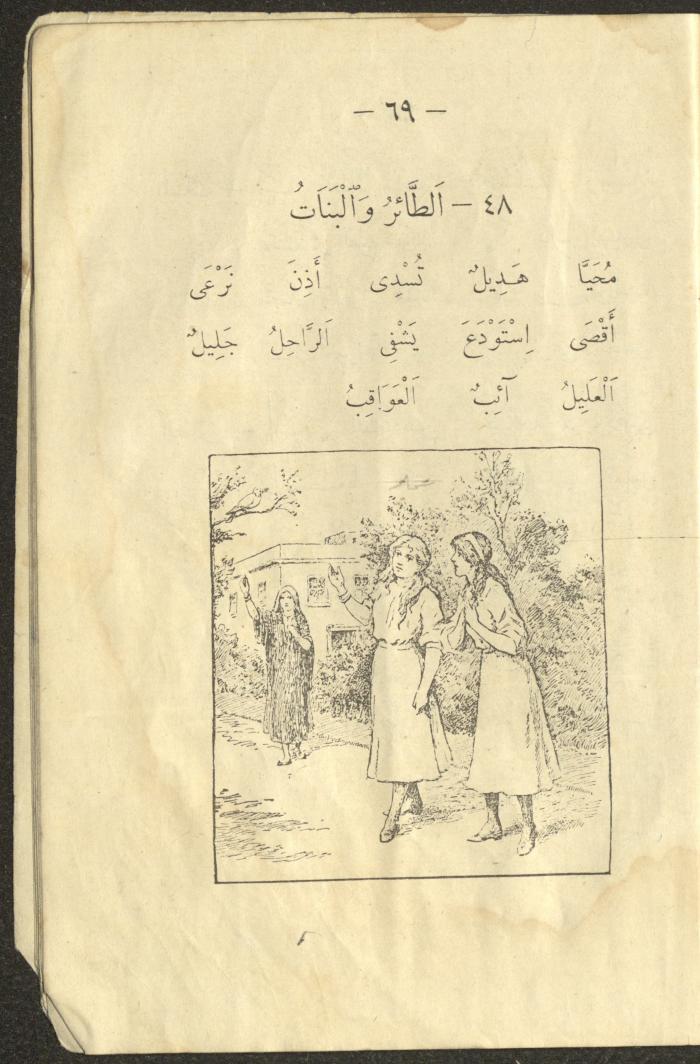 — ٦٩ —
٤٨ — اَلطَّائِرُ وَٱلْبَنَاتُ
مُحَيَّا هَدِيلٌ تُسْدِى أَذِنَ نَرْعَى
أَقْصَى اِسْتَوْدَعَ يَشْفِى اَلرَّاحِلُ جَلِيلٌ
اَلْعَلِيلُ آئِبٌ اَلْعَوَاقِبُ